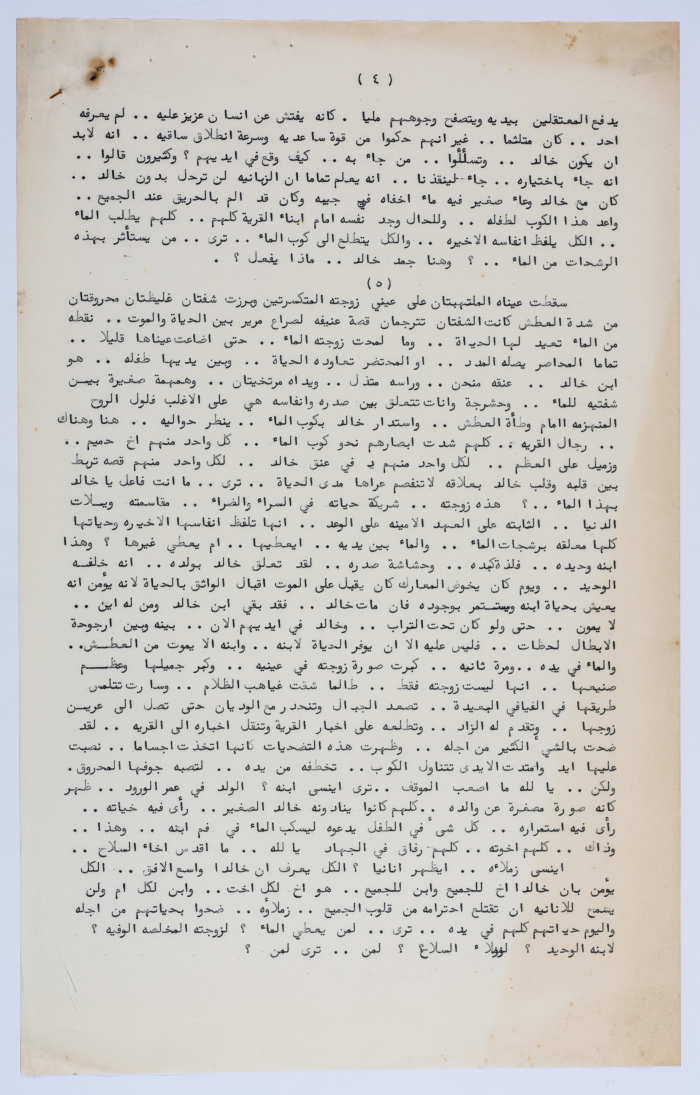 ( ٤ )
يدفع المعتقلين بيديه ويتصفح وجوههم مليا . كانه يفتش عن انسان عزيز عليه .. لم يعرفه
احد .. كان متلثما .. غير انهم حكموا من قوة ساعديه وسرعة انطلاق ساقيه .. انه لابد
ان يكون خالد .. وتسألوا .. من جاء به .. كيف وقع في ايديهم ؟ وكثيرون قالوا ..
انه جاء باختياره .. جاء لينقذنا .. انه يعلم تماما ان الزبانيه لن ترحل بدون خالد ..
كان مع خالد وعاء صغير فيه ماء اخفاه في جيبه وكان قد الم بالحريق عند الجميع ..
واعد هذا الكوب لطفله .. وللحال وجد نفسه امام ابناء القرية كلهم .. كلهم يطلب الماء
.. الكل يلفظ انفاسه الاخيره .. والكل يتطلع الى كوب الماء .. ترى .. من يستأثر بهذه
الرشحات من الماء .. ؟ وهنا جمد خالد .. ماذا يفعل ؟ .
( ٥ )
سقطت عيناه الملتهبتان على عيني زوجته المتكسرتين وبرزت شفتان غليظتان محروقتان
من شدة العطش كانت الشفتان تترجمان قصة عنيفه لصراع مرير بين الحياة والموت .. نقطه
من الماء تعيد لها الحياة .. وما لمحت زوجته الماء .. حتى اضاءت عيناها قليلا ..
تماما المحاصر يصله المدد .. او المحتضر تعاوده الحياة .. وبين يديها طفله .. هو
ابن خالد .. عنقه منحن .. وراسه متدل .. ويداه مرتخيتان .. وهمهمة صغيرة بين
شفتيه للماء .. وحشرجة وانات تتعلق بين صدره وانفاسه هي على الاغلب فلول الروح
المنهزمه اامام وطأة العطش .. واستدار خالد بكوب الماء .. ينظر حواليه .. هنا وهناك
.. رجال القريه .. كلهم شدت ابصارهم نحو كوب الماء .. كل واحد منهم اخ حميم ..
وزميل على العظم .. لكل واحد منهم يد في عنق خالد .. لكل واحد منهم قصه تربط
بين قلبه وقلب خالد بعلاقه لاتنفصم عراها مدى الحياة .. ترى .. ما انت فاعل يا خالد
بهذا الماء .. ؟ هذه زوجته .. شريكة حياته في السراء والضراء .. مقاسمته ويلات
الدنيا .. الثابته على العهد الامينه على الوعد .. انها تلفظ انفاسها الاخيره وحياتها
كلها معلقه برشحات الماء .. والماء بين يديه .. ايعطيها .. ام يعطي غيرها ؟ وهذا
ابنه وحيده .. فلذة كبده .. وحشاشة صدره .. لقد تعلق خالد بولده .. انه خلفه
الوحيد .. ويوم كان يخوض المعارك كان يقبل على الموت اقبال الواثق بالحياة لانه يؤمن انه
يعيش بحياة ابنه ويستمر بوجوده فان مات خالد .. فقد بقي ابن خالد ومن له ابن ..
لا يموت .. حتى ولو كان تحت التراب .. وخالد في ايديهم الان .. بينه وبين ارجوحة
الابطال لحظات .. فليس عليه الا ان يوفر الحياة لابنه .. وابنه الا يموت من العطش ..
والماء في يده .. ومرة ثانيه .. كبرت صورة زوجته في عينيه .. وكبر جميلها وعظم
صنيعها .. انها ليست زوجته فقط .. طالما شقت غياهب الظلام .. وسارت تتلمس
طريقها في الفيافي البعيدة .. تصعد الجبال وتنحدر مع الوديان حتى تصل الى عرين
زوجها .. وتقدم له الزاد .. وتطلعه على اخبار القرية وتنقل اخباره الى القريه .. لقد
ضحت بالشيء الكثير من اجله .. وظهرت هذه التضحيات كانها اتخذت اجساما .. نصبت
عليها ايد وامتدت الايدي تتناول الكوب .. تخطفه من يده .. لتصبه جوفها المحروق .
ولكن .. يا لله ما اصعب الموقف .. ترى اينسى ابنه ؟ الولد في عمر الورود .. ظهر
كانه صورة مصغرة عن والده .. كلهم كانوا ينادونه خالد الصغير .. رأى فيه حياته ..
رأى فيه استمراره .. كل شيء في الطفل يدعوه ليسكب الماء في فم ابنه .. وهذا ..
وذاك .. كلهم اخوته .. كلهم رفاق في الجهاد يا لله .. ما اقدس اخاء السلاح ..
اينسى زملاءه .. ايظهر انانيا ؟ الكل يعرف ان خالدا واسع الافق .. الكل
يؤمن بان خالدا اخ للجميع وابن للجميع .. هو اخ لكل اخت .. وابن لكل ام ولن
يسمح للانانيه ان تقتلع احترامه من قلوب الجميع .. زملاؤه .. ضحوا بحياتهم من اجله
واليوم حياتهم كلهم في يده .. ترى .. لمن يعطي الماء ؟ لزوجته المخلصه الوفيه ؟
لابنه الوحيد ؟ لزملاء السلاح ؟ لمن .. ترى لمن ؟